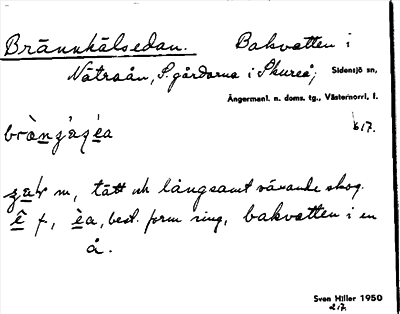 Brännkälsedan. Bakvatten i
Nätraån, S. gårdarna i Skureå; Sidensjö sn,
Ångermanl. n. doms. tg., Västernorrl. l.
617.
m, tätt och långsamt växande skog.
ê f, èa, best. form sing, bakvatten i en
å.
Sven Hiller 1950